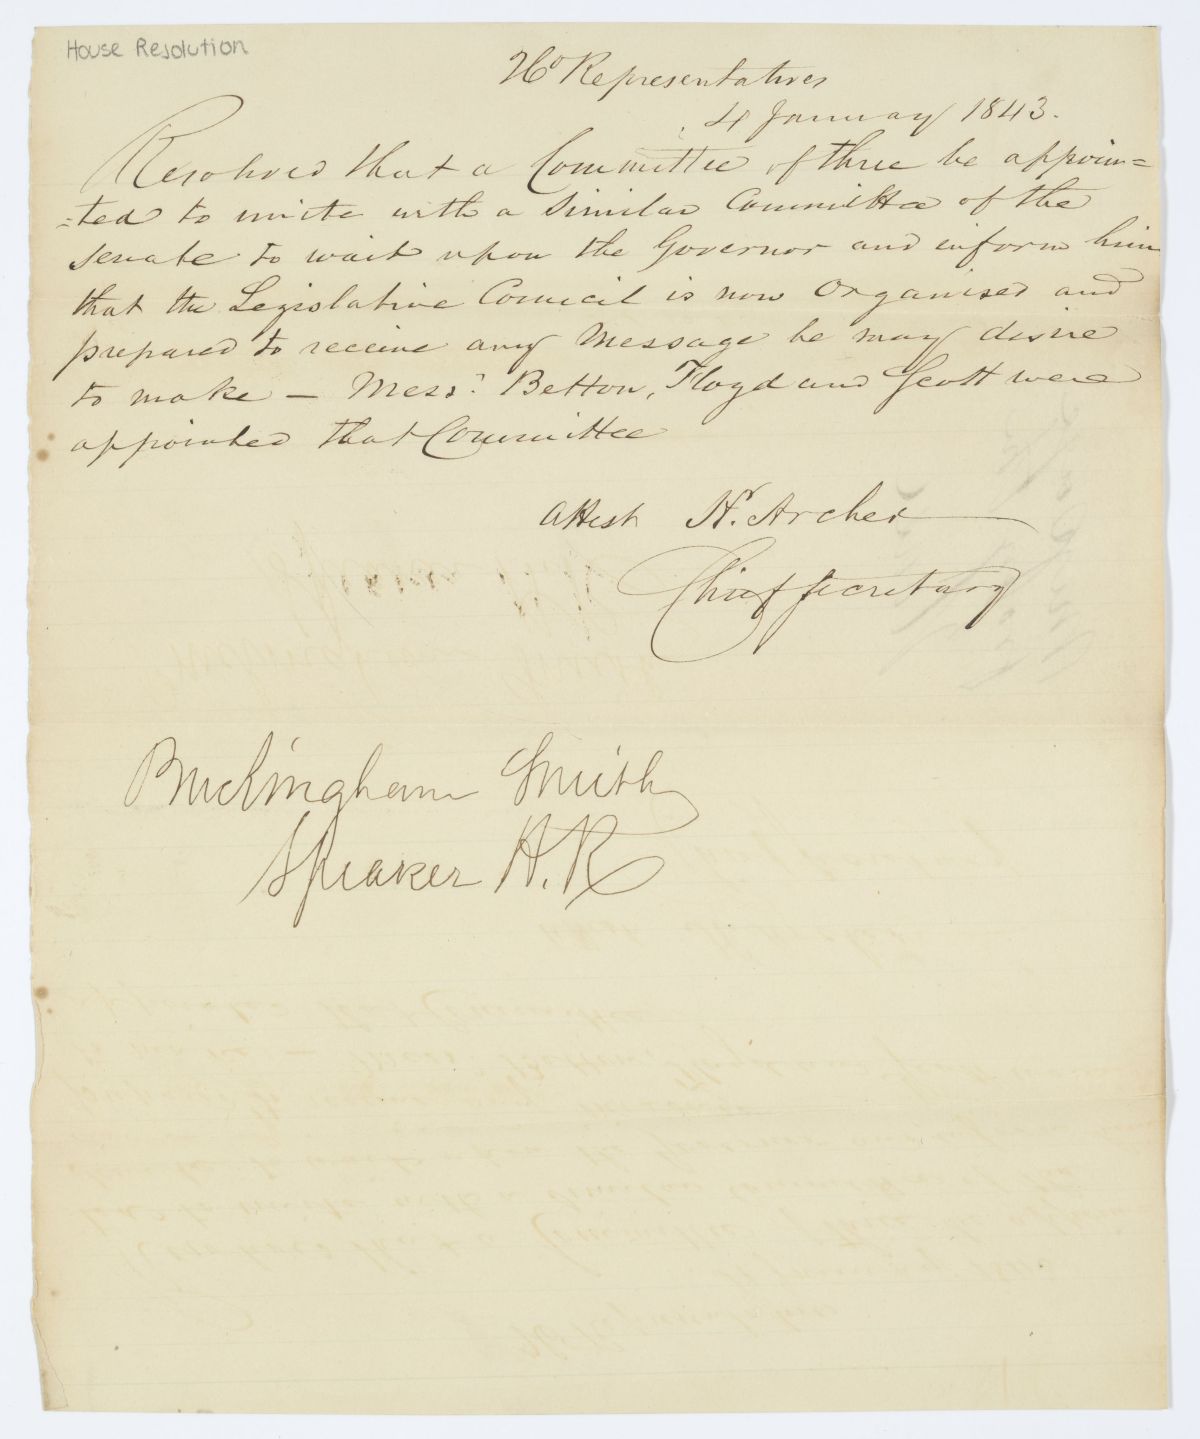 House Resolution
Ho Representatives
4 January 1843.
Resolved that a Committee of three be appoin=
=ted to unite with a Similar Committee of the
Senate to wait upon the Governor and inform him
that the Legislative Council is now Organised and
prepared to receive any Message he may desire
to make – Messrs Betton, Floyd and Scott were
appointed that Committee
Attest Hy. Archer
Chief Secretary
Buckingham Smith
Speaker H.R